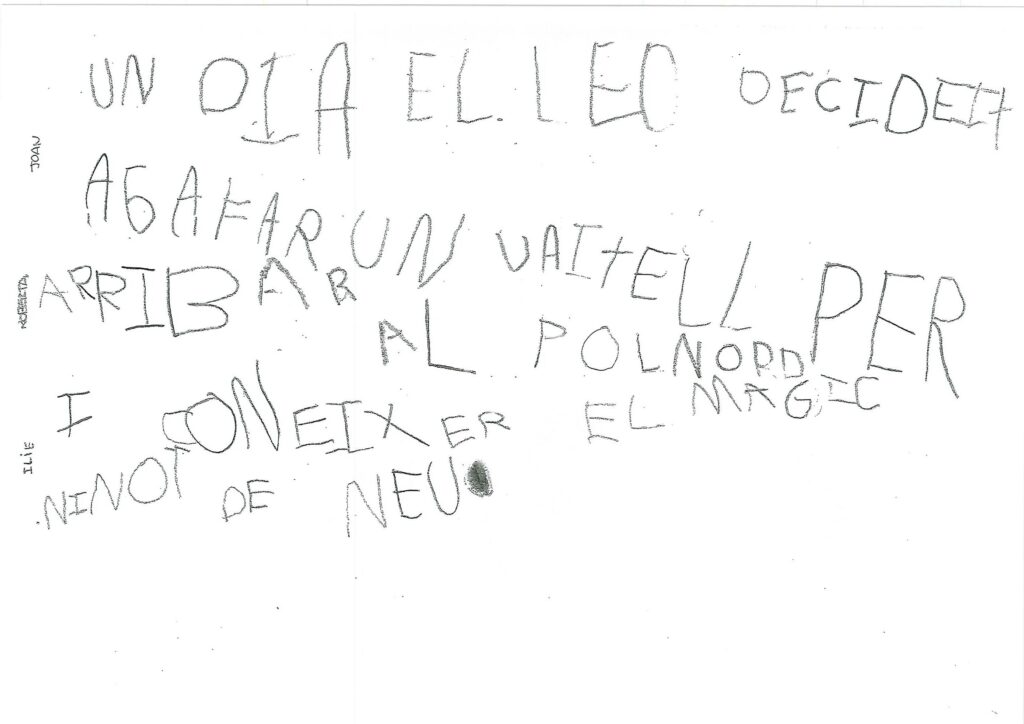 UN DIA EL LEO DECIDEIT
AGAFAR UN VAITELL PER
ARRIBAR AL POL NORD
I CONEIXER EL MAGIC
NINOT DE NEU
JOAN
ROBERTA
ILIE